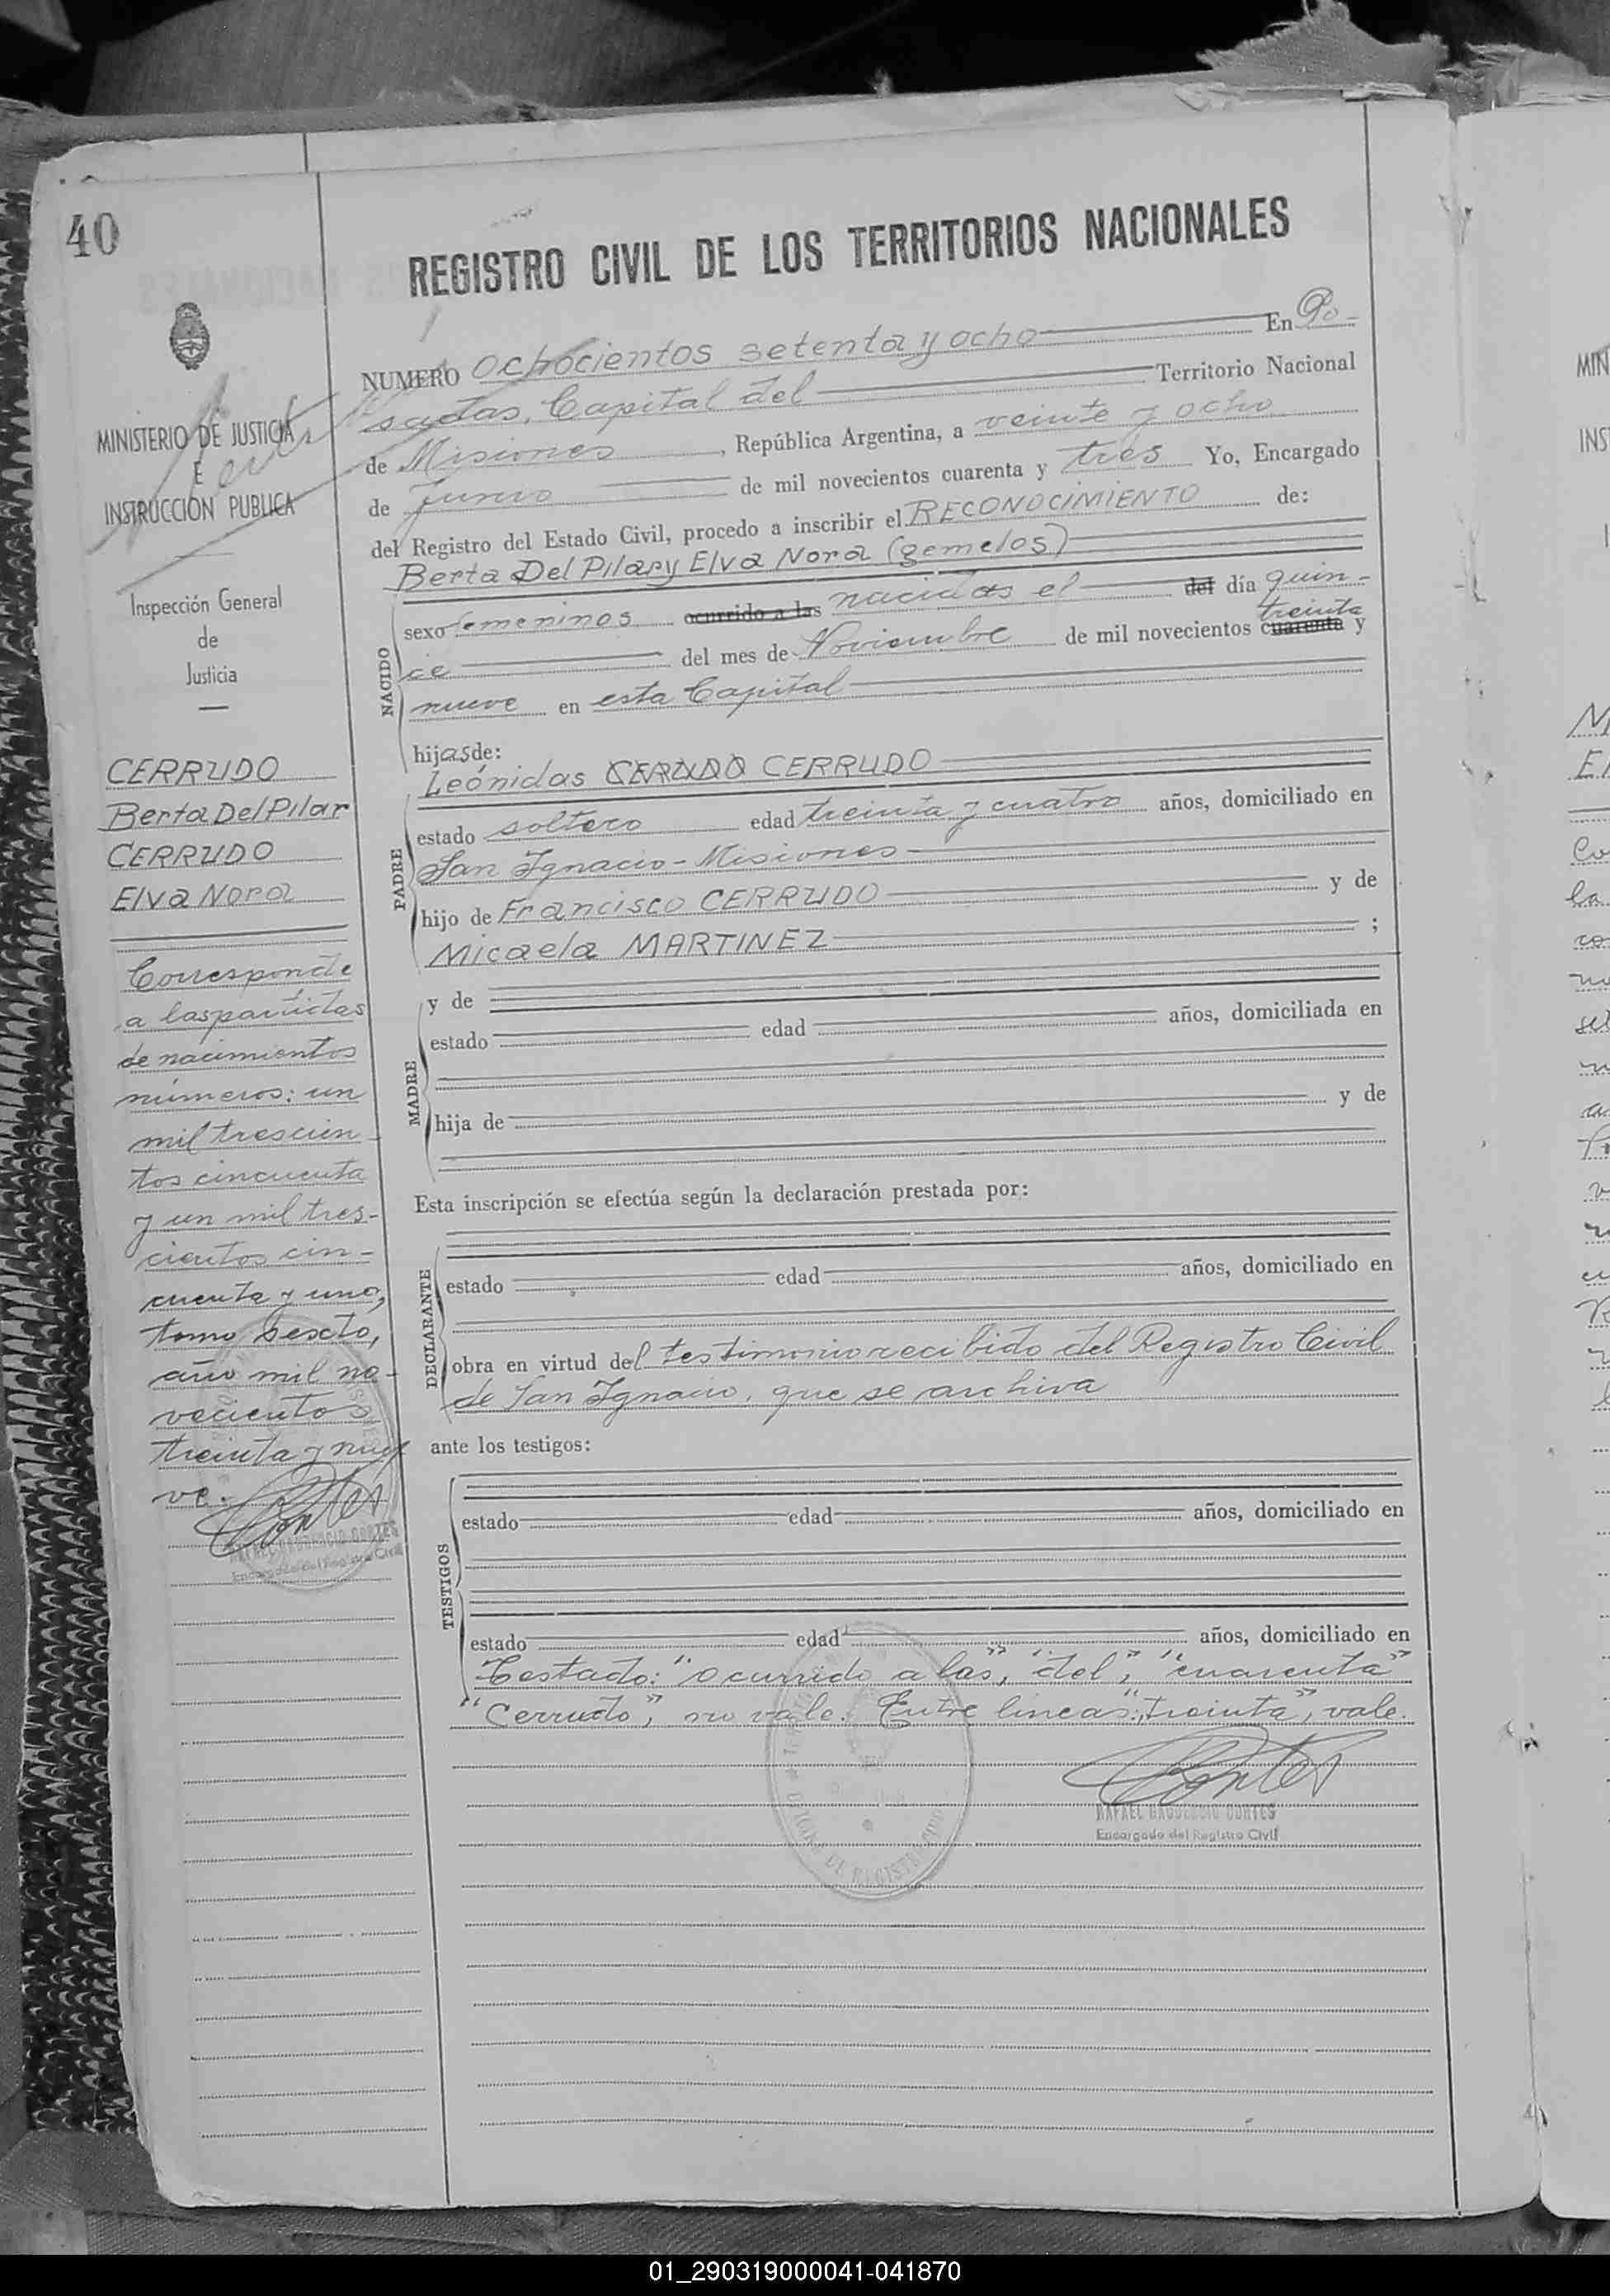 40
REGISTRO CIVIL DE LOS TERRITORIOS NACIONALES
MINISTERIO DE JUSTICIA
E
INSTRUCCION PUBLICA
Inspección General
de
Justicia
CERRUDO
Berta Del Pilar
CERRUDO
Elva Nora
Corresponde
a las partidas
de nacimientos
números: un
mil trescien-
tos cincuenta
y un mil tres-
cientos cin-
cuenta y uno,
tomo sexto,
año mil no-
vecientos
treinta y nue
ve.
RAFAEL GAUDENCIO CORTES
Encargado del Registro Civil
NUMERO Ochocientos setenta y ocho En Po-
sadas, Capital del Territorio Nacional
de Misiones, República Argentina, a veinte y ocho
de Junio de mil novecientos cuarenta y tres Yo, Encargado
del Registro del Estado Civil, procedo a inscribir el RECONOCIMIENTO de:
Berta Del Pilar y Elva Nora (gemelos)
NACIDO
sexo femeninos ocurrido a las nacidas el del día quin-
treinta
ce del mes de Noviembre de mil novecientos cuarenta y
nueve en esta Capital
hijas de:
Leónidas CERUDO CERRUDO
PADRE
estado soltero edad treinta y cuatro años, domiciliado en
San Ignacio - Misiones
hijo de Francisco CERRUDO y de
Micaela MARTINEZ ;
MADRE
y de
estado edad años, domiciliada en
hija de y de
Esta inscripción se efectúa según la declaración prestada por:
DECLARANTE
estado edad años, domiciliado en
obra en virtud del testimonio recibido del Registro Civil
de San Ignacio, que se archiva
ante los testigos:
TESTIGOS
estado edad años, domiciliado en
estado edad años, domiciliado en
Testado: "ocurrido a las", "del", "cuarenta"
"Cerrudo", no vale. Entre lineas: "treinta", vale.
Cortes
RAFAEL GAUDENCIO CORTES
Encargado del Registro Civil
01_290319000041-041870